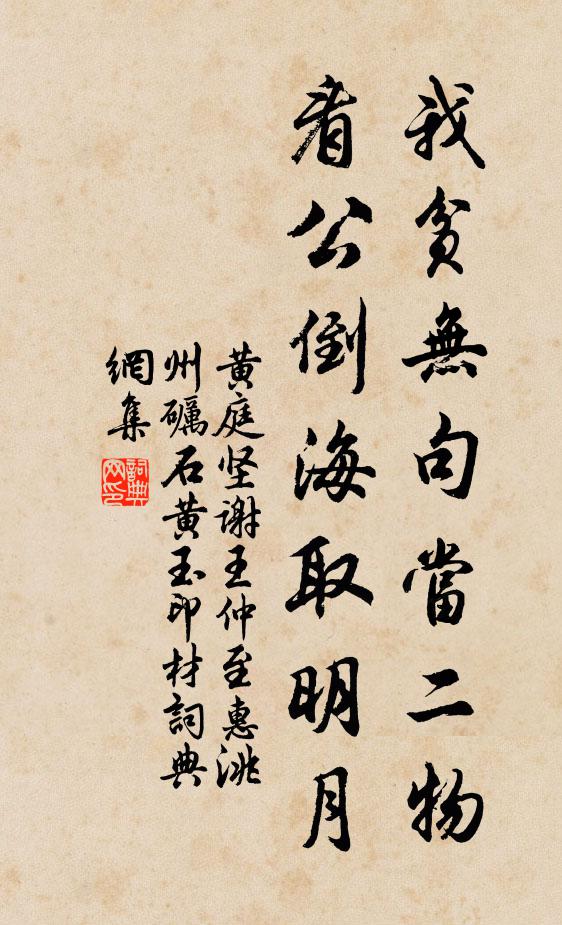 我貧無句當二物
看公倒海取明月
黄庭坚谢王仲至惠洮
州礪石黄玉印材詞典
網集
詞典網印